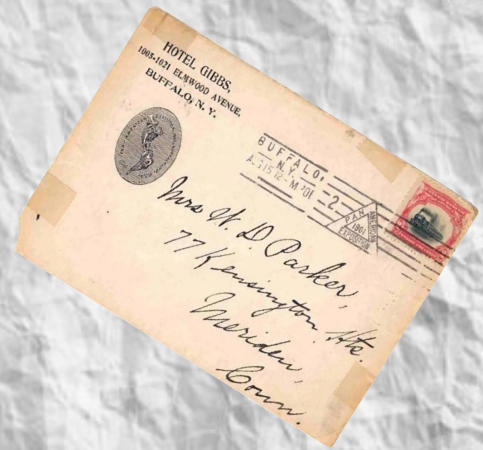 HOTEL GIBBS,
1005-1021 ELMWOOD AVENUE,
BUFFALO, N. Y.
BUFFALO,
N.Y.
2
PAN
AMERICAN
1901
EXPOSITION
Mrs W. D Parker,
77 Kensington Hts.
Meriden,
Conn.